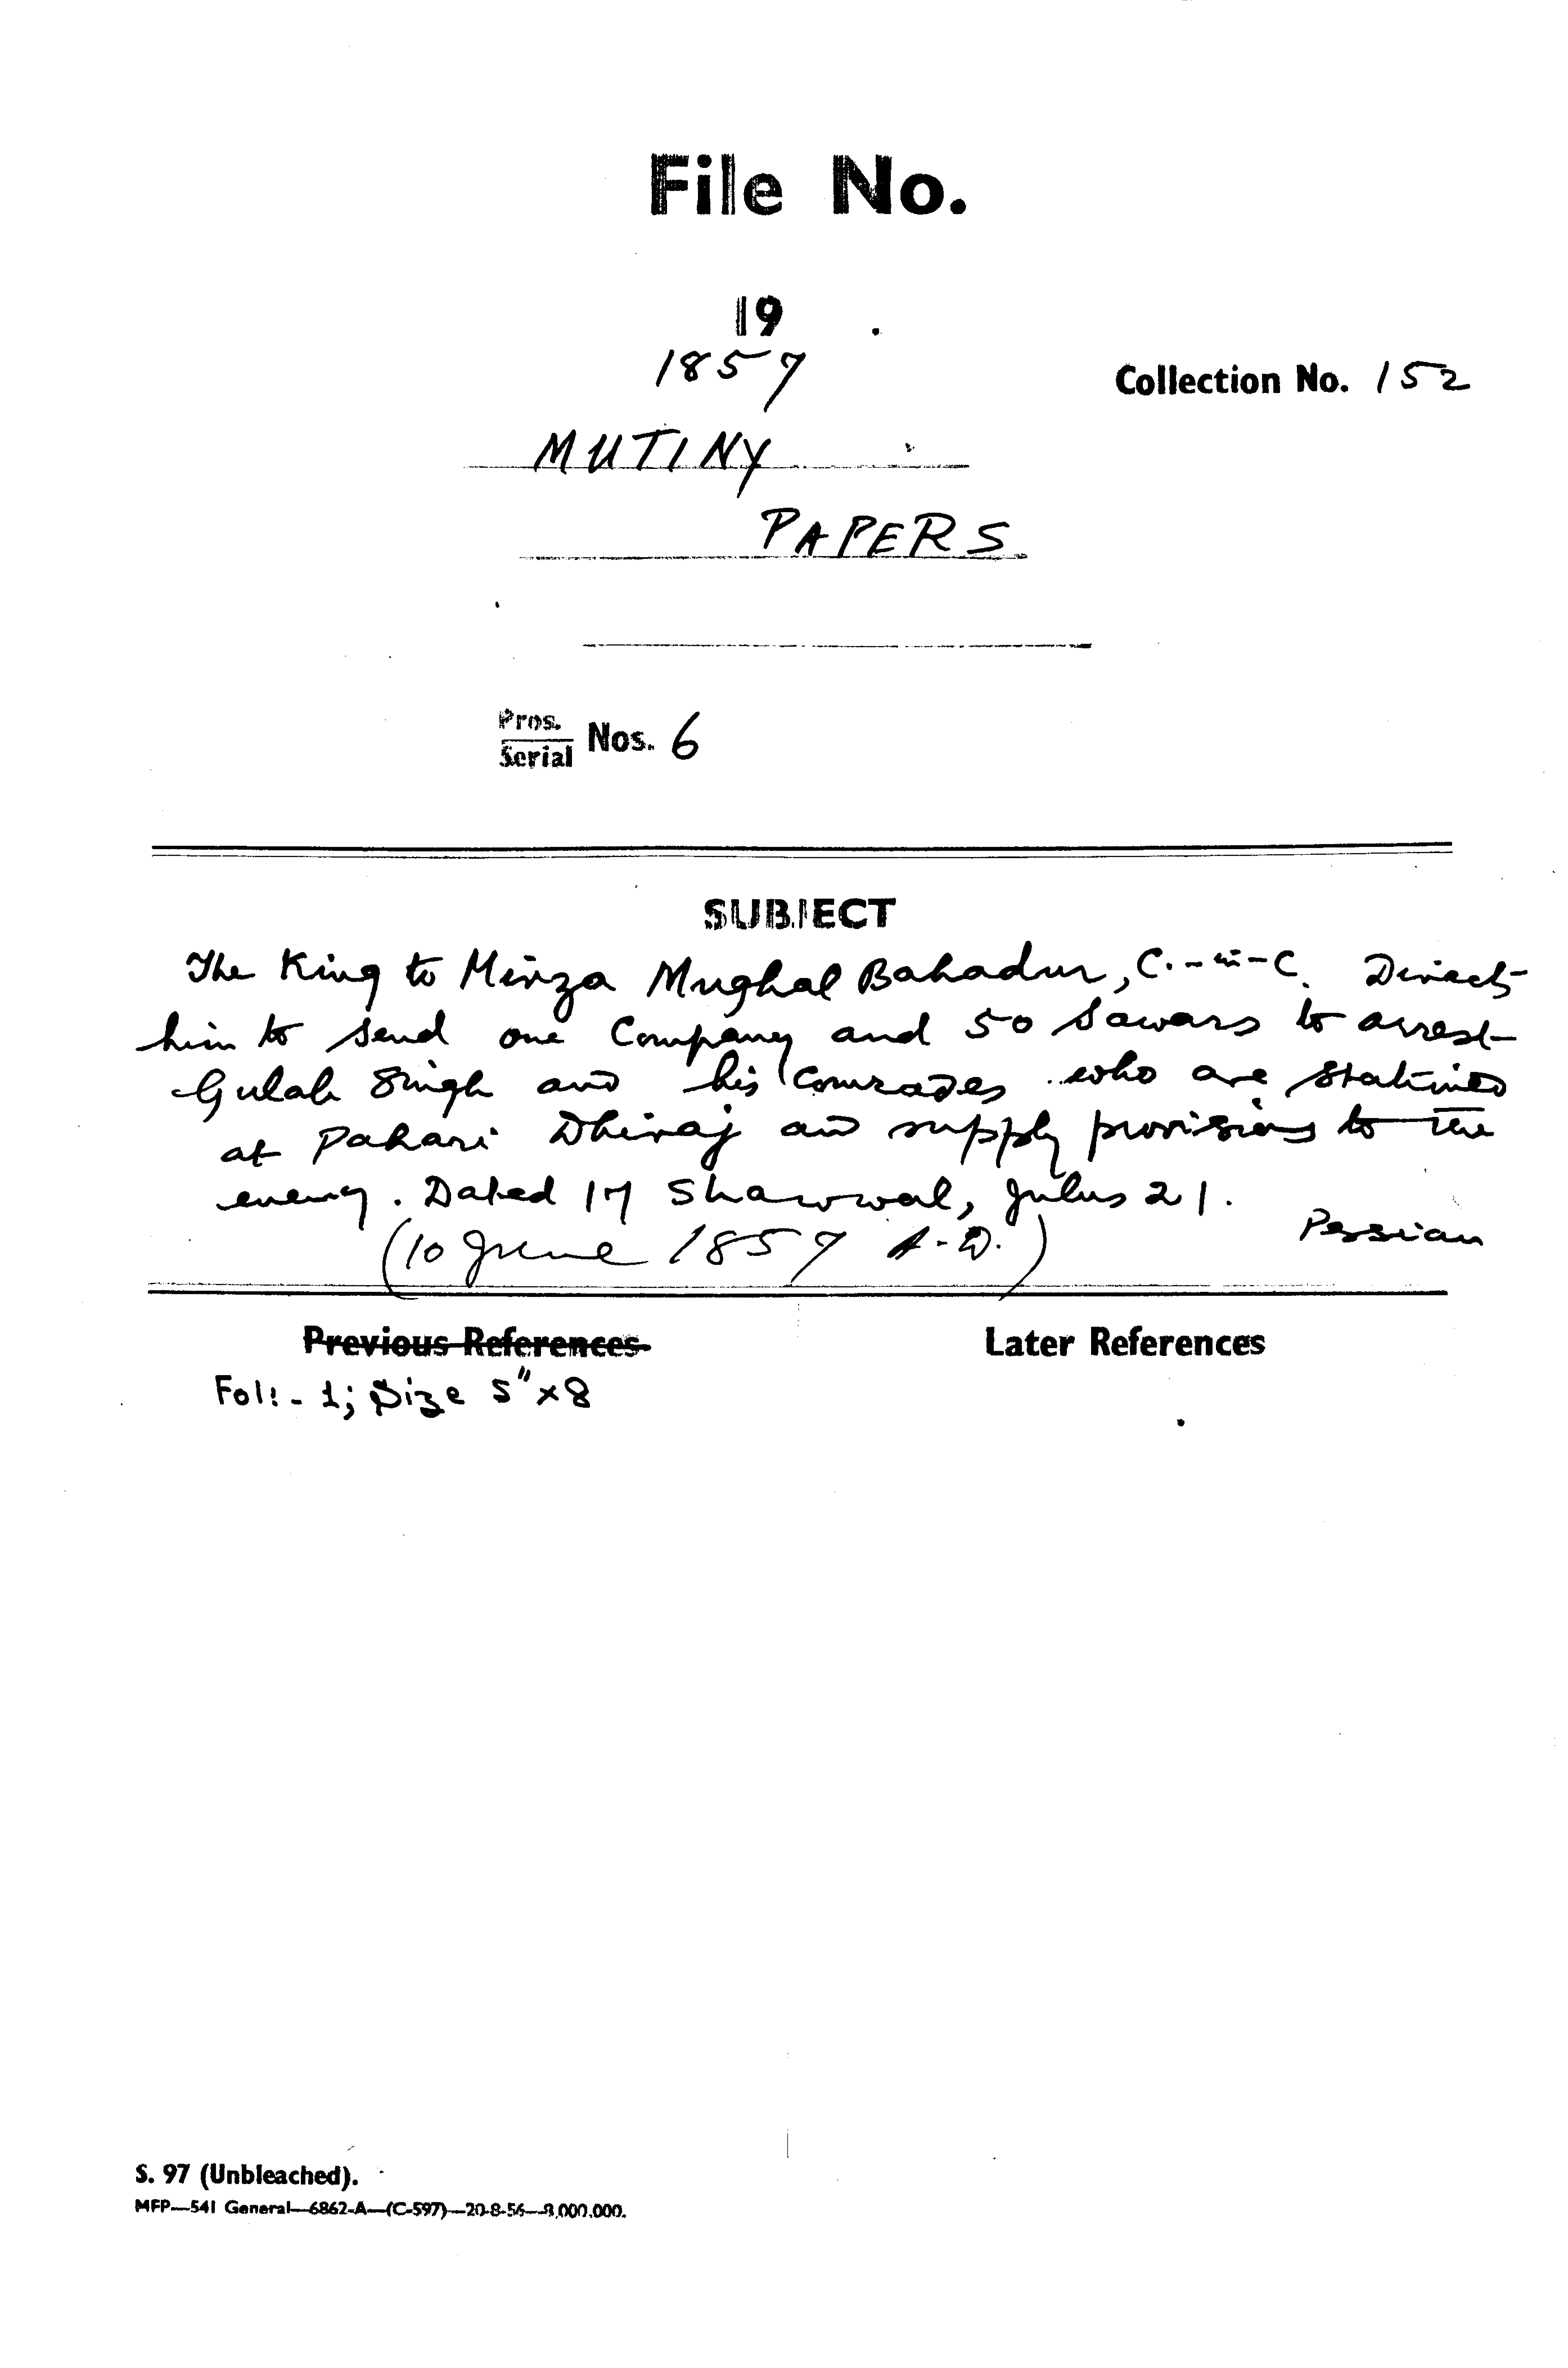 File No.
19
1857
Collection No. 152
MUTINY
PAPERS
Pros.
Serial Nos. 6
SUBJECT
The King to Mirza Mughal Bahadur, C.-in-C. Directs
him to send one Company and 50 Sawars to arrest
Gulab Singh and his Comrades who are stationed
at Pahari Dhiraj and supply provisions to the
enemy. Dated 17 Shawwal, Julus 21.
Persian
(10 June 1857 A.D.)
Previous References
Later References
Fol: - 1; Size 5"x8
S. 97 (Unbleached).
MFP—541 General—6862-A—(C-597)—20-8-56—8,000,000.